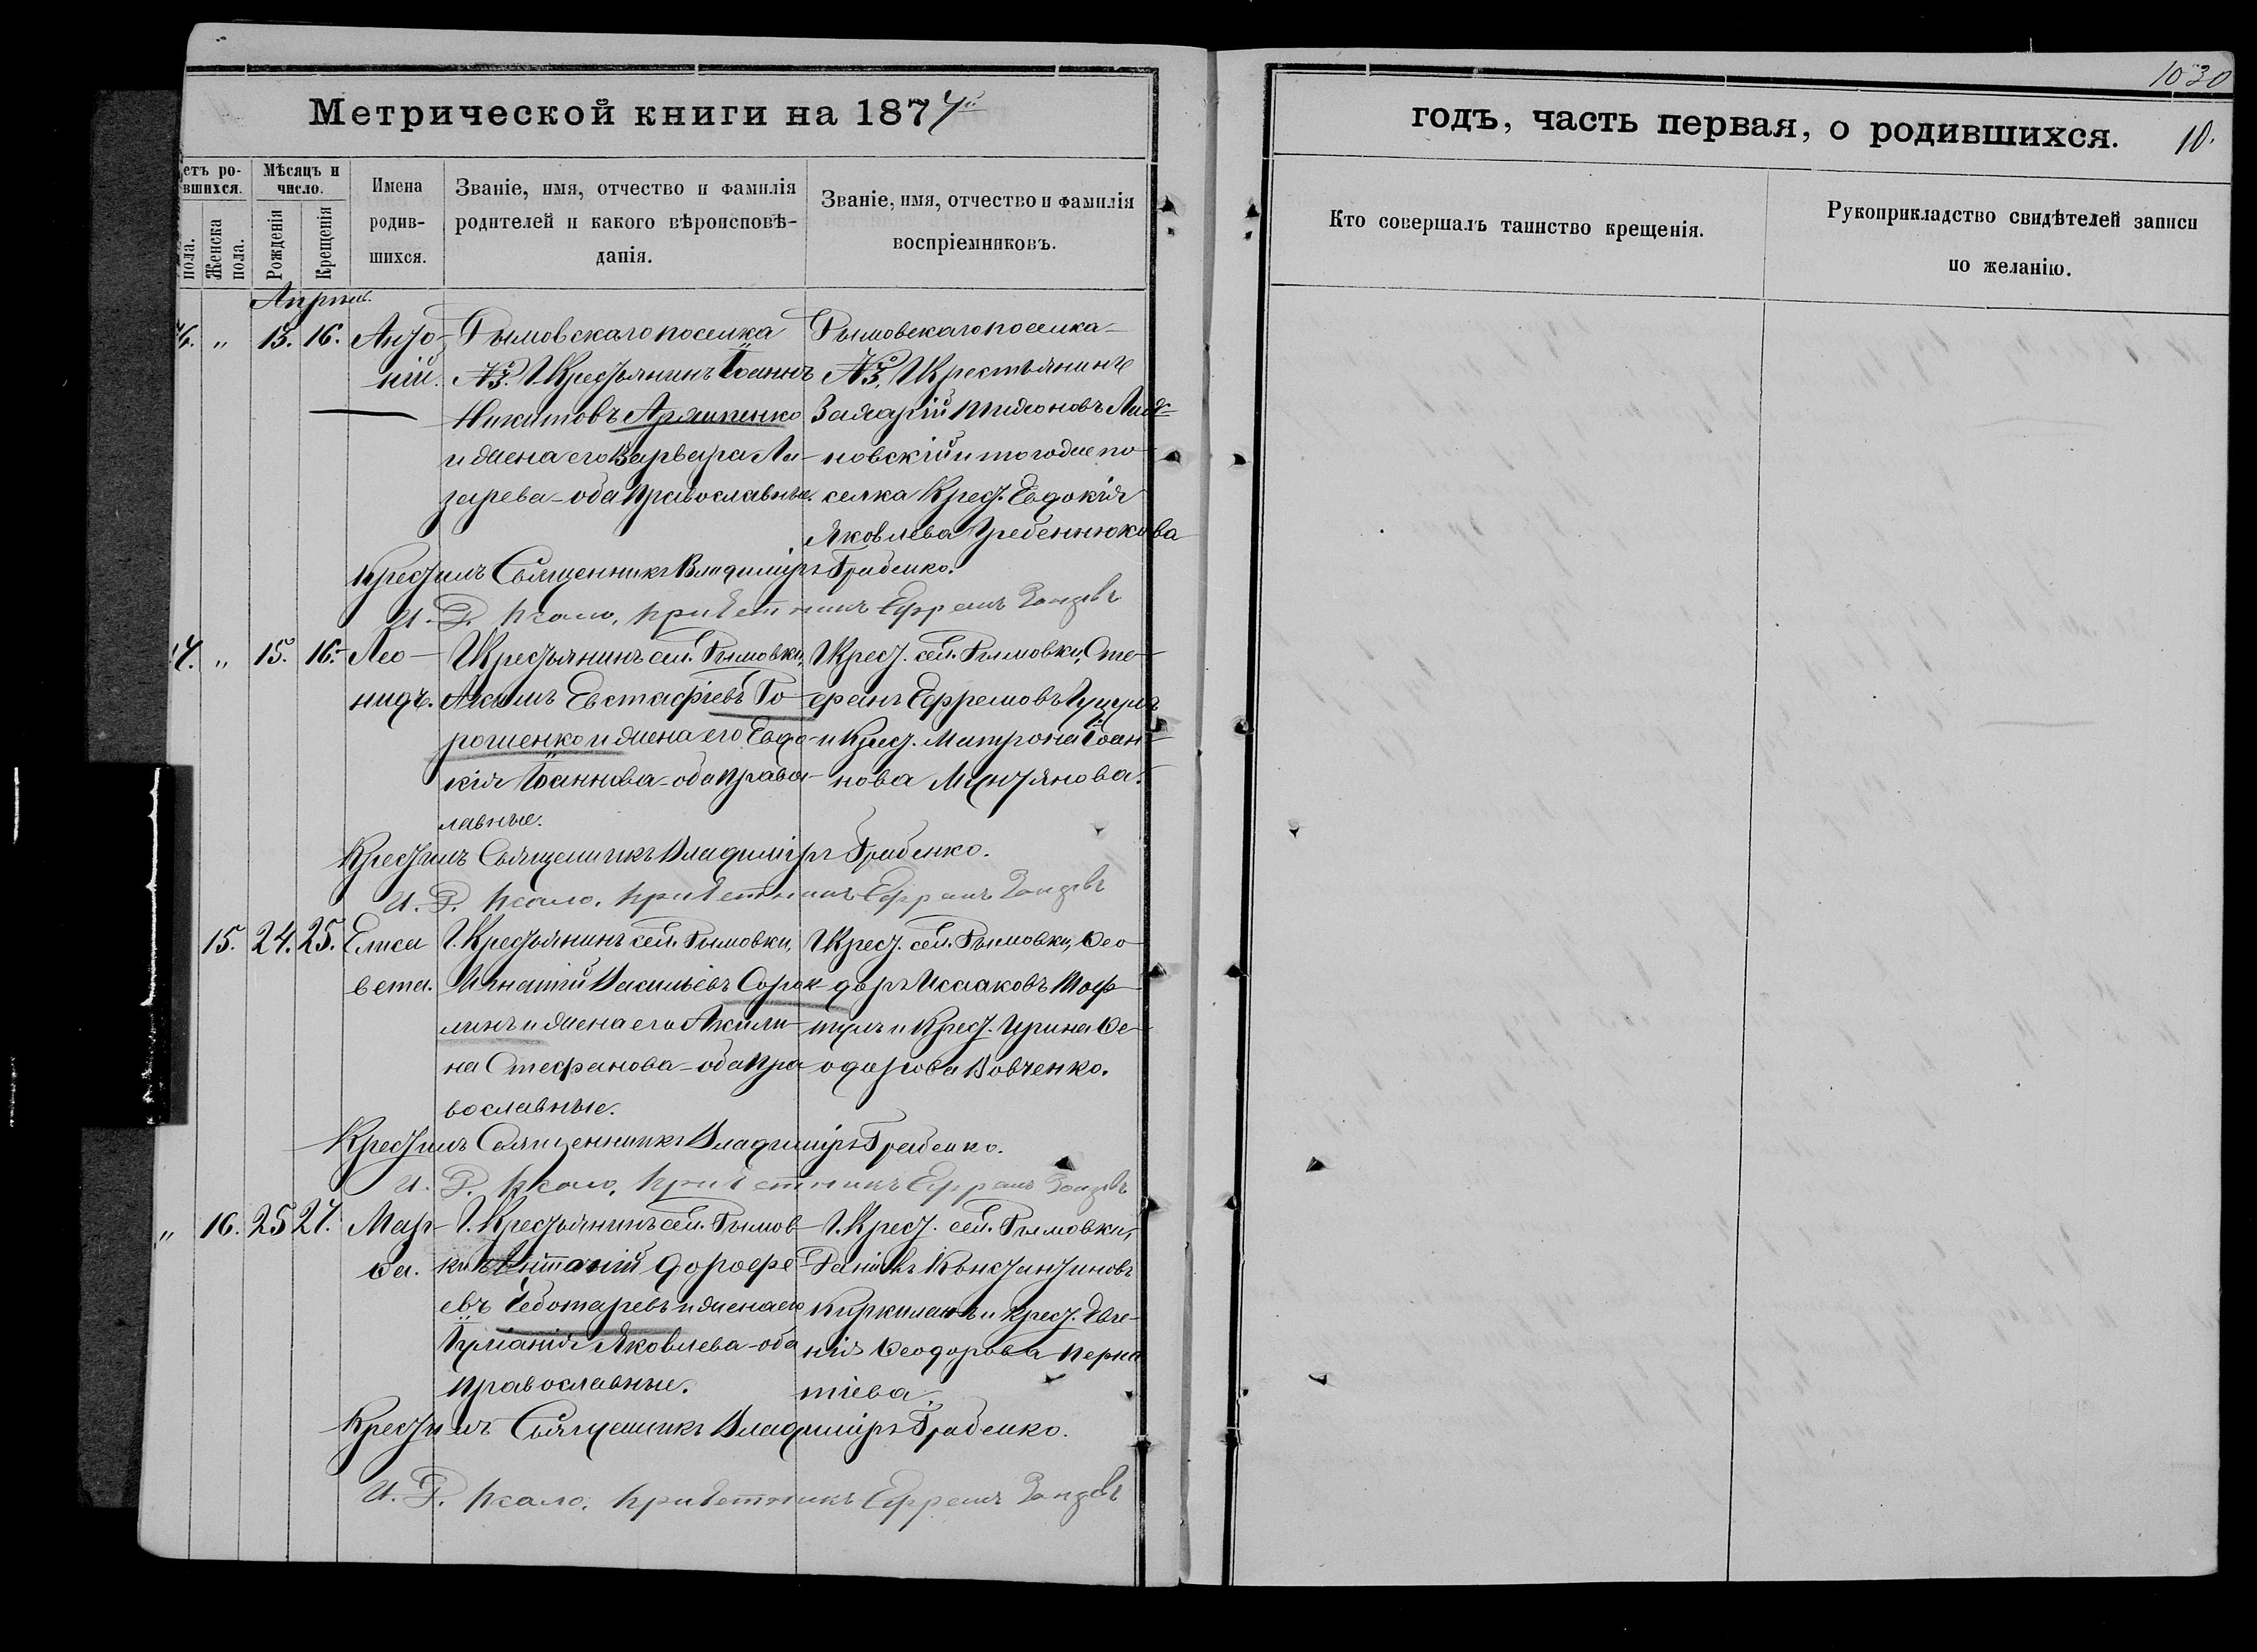 1030
Метрической книги на 1874й
годъ, часть первая, о родившихся. 10.
етъ ро-
вшихся.
Мѣсяцъ и
число.
пола.
Женска
пола.
Рожденія
Крещенія
Имена
родив-
шихся.
Званіе, имя, отчество и фамилія
родителей и какого вѣроисповѣ-
данія.
Званіе, имя, отчество и фамилія
воспріемниковъ.
Кто совершалъ таинство крещенія.
Рукоприкладство свидѣтелей записи
по желанію.
Апрѣль.
„ 15. 16. Анто-
ній.
Рымовскаго поселка
№3. Крестьянинъ Іоаннъ
Никитовъ
и жена его Варвара Ла-
зарева - оба православные.
Рымовскаго поселка
№3, Крестьянинъ
Захарій
новскій и тогоже по-
селка Крест. Евдокія
Яковлева Гребеннюкова
Крестилъ Священникъ Владиміръ Грабенко.
И. Д. Псало. Причетникъ Ефремъ
„ 15. 16. Лео-
нидъ.
Крестьянинъ сел. Рымовки,
Акимъ Евстафіевъ Го-
рошенко и жена его Евдо-
кія Іоаннова - оба правос-
лавные.
Крест. сел. Рымовки, Сте-
фанъ Ефремовъ
и Крест. Матрона Іоан-
нова Мунтянова.
Крестилъ Священникъ Владиміръ Грабенко.
И. Д. Псало. Причетникъ Ефремъ
15. 24. 25. Елиса
вета.
Крестьянинъ сел. Рымовки,
Игнатій Васильевъ Сорок-
линъ и жена его Акили-
на Стефанова - оба пра-
вославные.
Крест. сел. Рымовки, Ѳео-
доръ Исааковъ Шоф-
тулъ и Крест. Ирина Ѳе-
одорова Вовченко.
Крестилъ Священникъ Владиміръ Грабенко.
И. Д. Псало. Причетникъ Ефремъ
„ 16. 25 27. Мар-
ѳа.
Крестьянинъ сел. Рымов-
ки Антоній Дорофе
евъ Чеботаревъ и жена его
Іуліанія Яковлева - оба
православные.
Крест. сел. Рымовки,
Даніилъ Константиновъ
Киркиланъ и Крест. Евге-
нія Ѳеодорова
тіева.
Крестилъ Священникъ Владиміръ Грабенко.
И. Д. Псало. Причетникъ Ефремъ